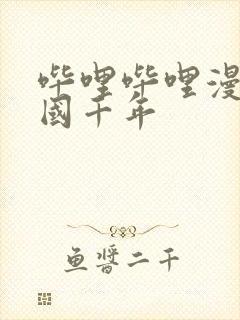 哔哩哔哩漫
國千年
鱼醬二千